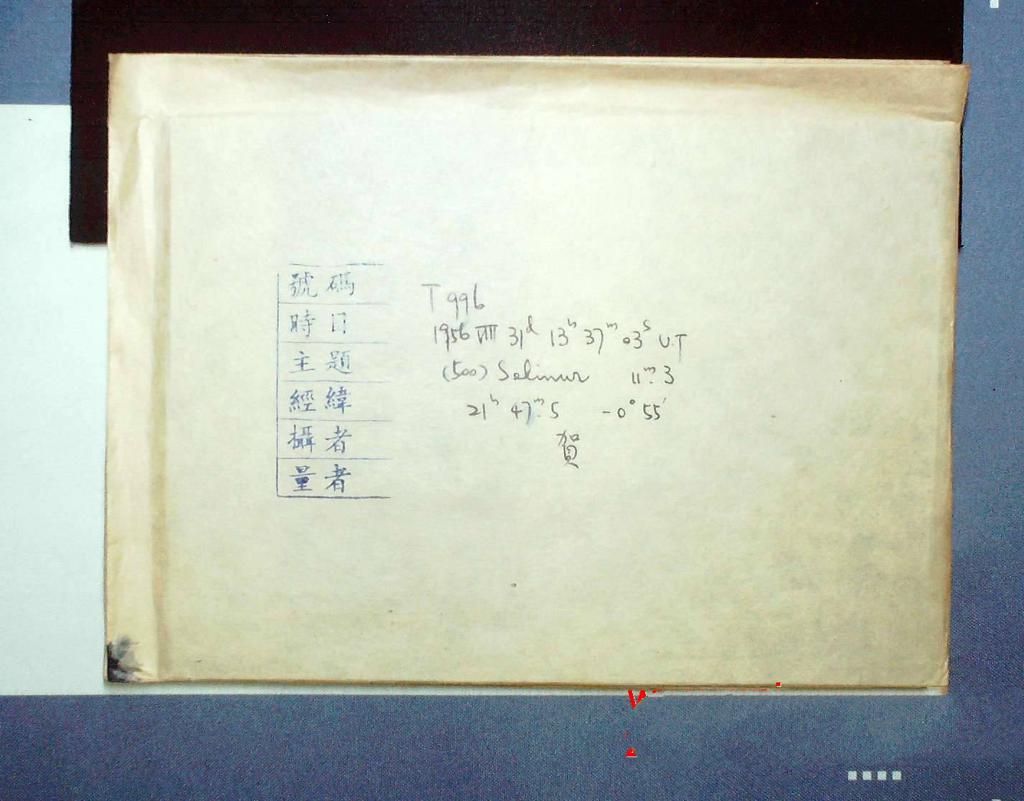 號碼 T 996
時日 1956 VIII 31d 13h 37m 03s U.T
主題 (500) Selinur 11m.3
經緯 21h 47m.5 -0° 55'
攝者 賀
量者